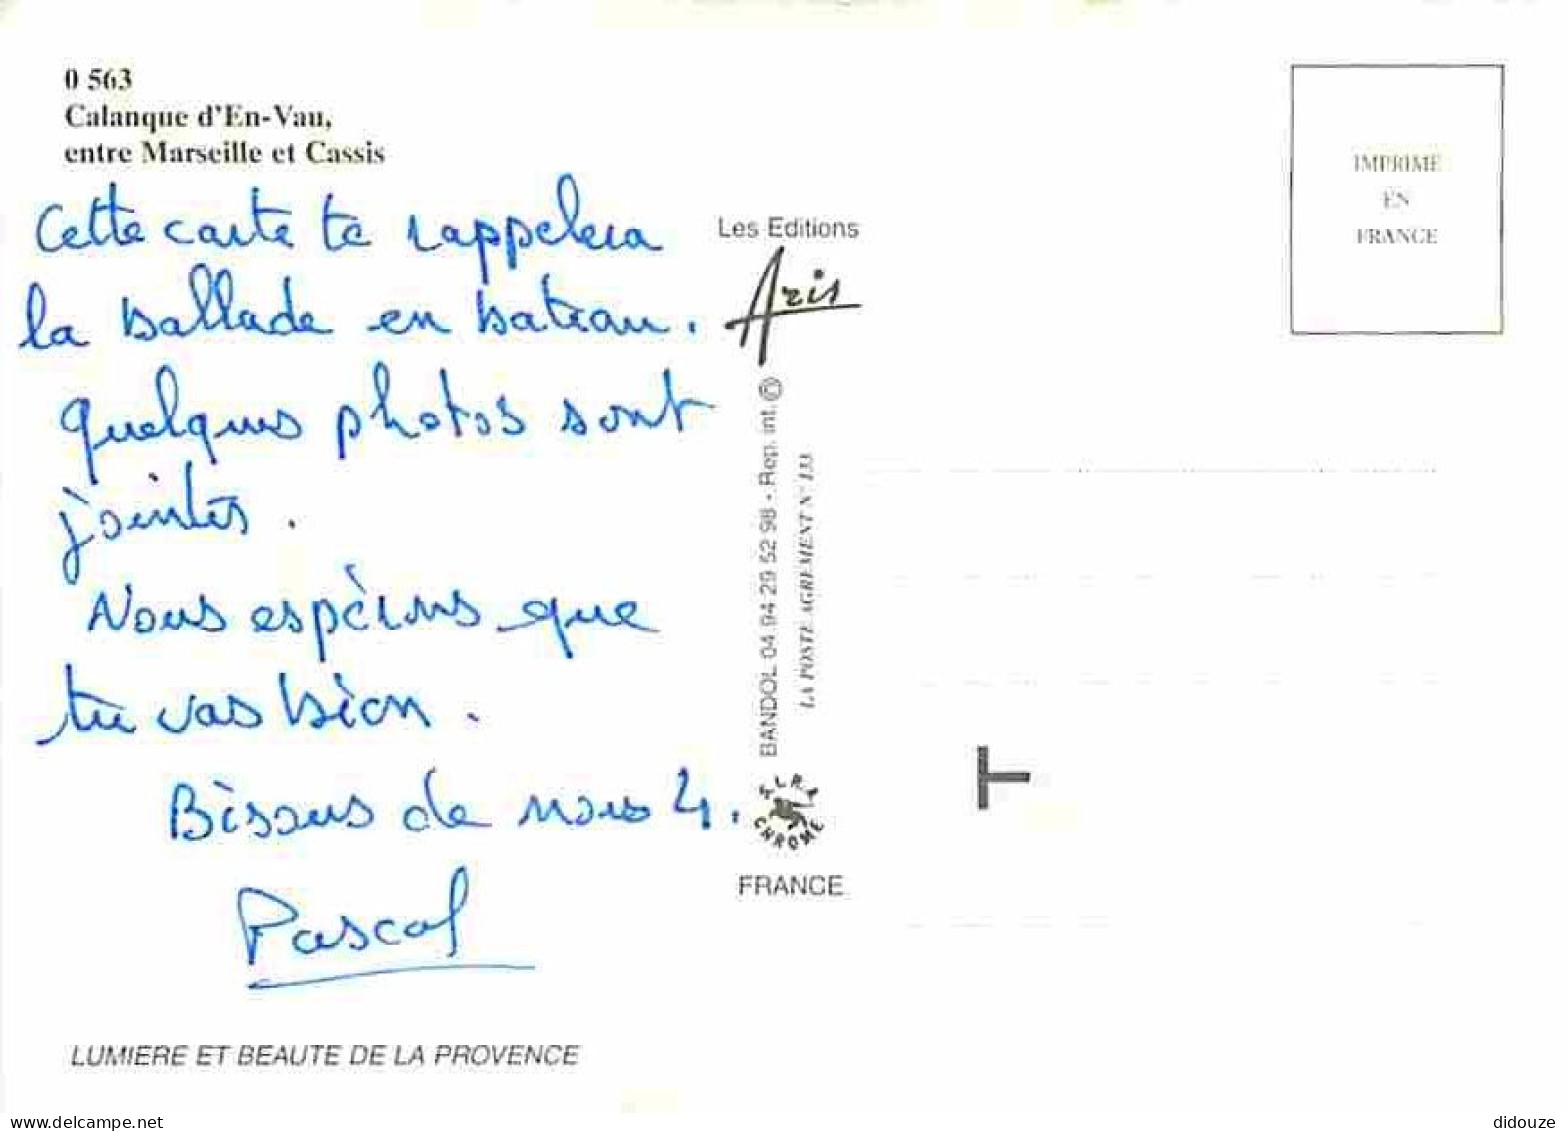 0 563
Calanque d'En-Vau,
entre Marseille et Cassis
Cette carte te rappelera
la ballade en bateau.
quelques photos sont
jointes.
Nous espérons que
tu vas bien.
Bisous de nous 4.
Pascal
LUMIERE ET BEAUTE DE LA PROVENCE
Les Editions
Aris
BANDOL 04 94 29 52 98 - Rep. int. ©
LA POSTE AGREMENT N° 133
CHROME
FRANCE
IMPRIME
EN
FRANCE
T
delcampe.net
didouze